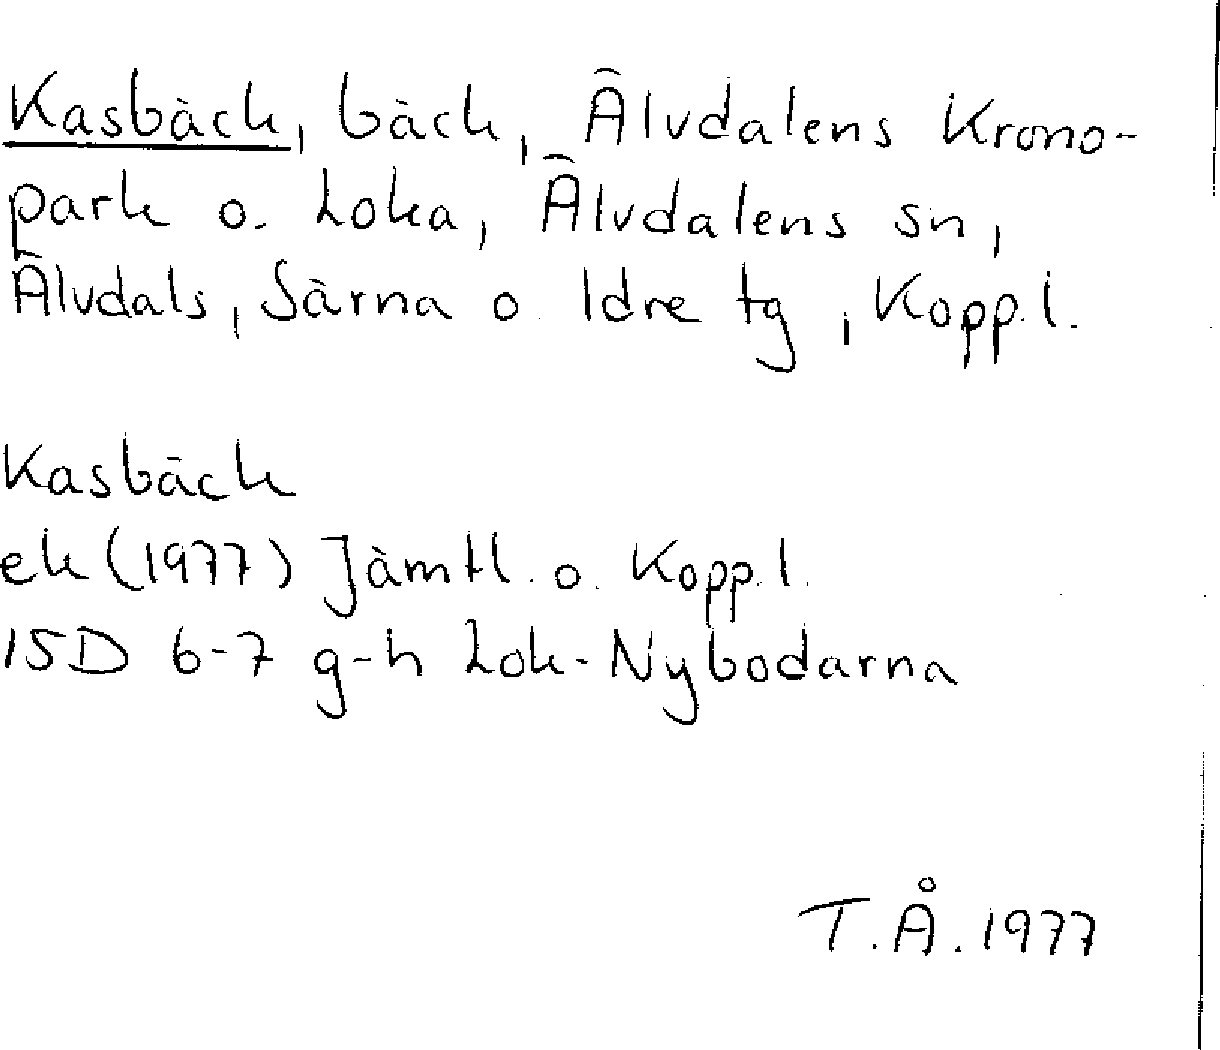 Kasbäck, bäck, Älvdalens Krono-
park o. Loka, Älvdalens sn,
Älvdals, Särna o. Idre tg, Kopp.l.
Kasbäck
ek (1977) Jämtl. o. Kopp.l.
15D 6-7 g-h Lok-Nybodarna
T.Å. 1977